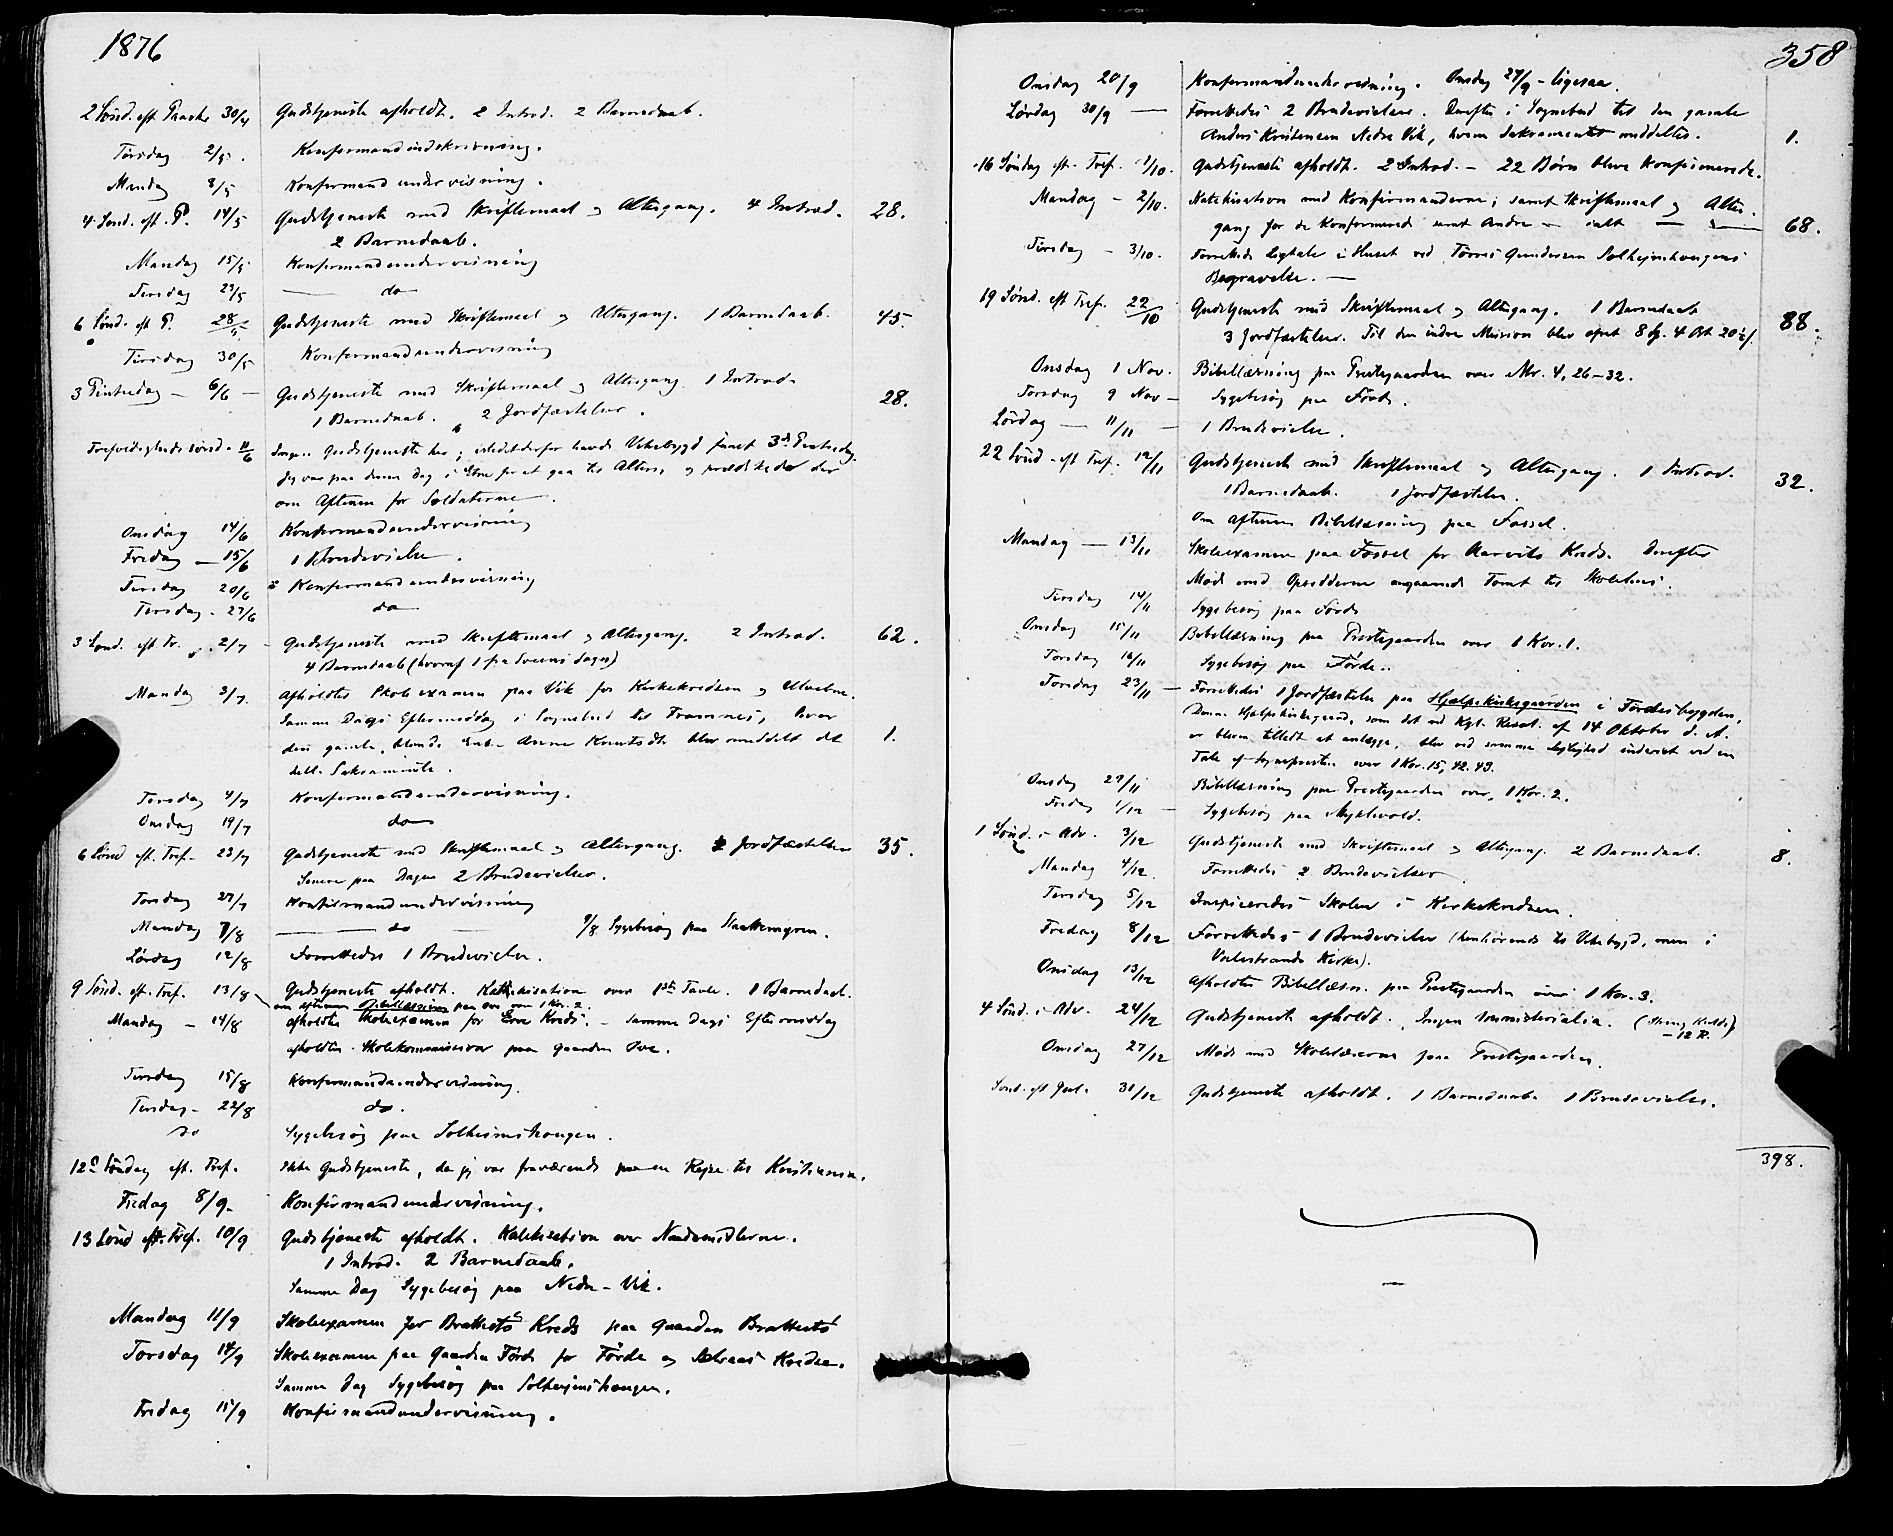 1876
2 Sønd. eft. Paaske 30/4 Gudstjeneste afholdt. 2 Introd. 2 Barnedaab.
Tirsdag 2/5. Konfirmandindskrivning.
Mandag 8/5 Konfirmandundervisning.
4 Sønd. eft. P. 14/5 Gudstjeneste med Skriftemaal og Altergang. 4 Introd. 28.
2 Barnedaab.
Mandag 15/5 Konfirmandundervisning
Tirsdag 23/5 — do —
6 Sønd. eft P. 28/5 Gudstjeneste med Skriftemaal og Altergang. 1 Barnedaab. 45.
Tirsdag 30/5 Konfirmandundervisning
3 Pintsedag — 6/6 — Gudstjeneste med Skriftemaal og Altergang. 1 Introd. 28.
1 Barnedaab. 2 Jordfæstelser.
Trefoldighedssønd. 11/6 Ingen Gudstjeneste her; istedetderfor havde Vikebygd Punct 3die Pintsedag.
Jeg var paa denne Dag i Etne for at gaa til Alters, og prædikede der
om Aftenen for Soldaterne.
Onsdag 14/6 Konfirmandundervisning
Fredag — 15/6 1 Brudevielse.
Tirsdag 20/6 Konfirmandundervisning
Tirsdag. 27/6 do
3 Sønd. eft Tr. 2/7 Gudstjeneste med Skriftemaal og Altergang. 2 Introd. 62.
4 Barnedaab (hvoraf 1 fra Sveens Sogn)
Mandag 3/7. Afholdtes Skoleexamen paa Vik for Kirkekredsen og
Samme Dags Eftermiddag i Sognebud til Framnes, hvor
den gamle, blinde Enke Anna Knutsdtr. blev meddelt det 1.
hell. Sakramente.
Tirsdag 4/7 Konfirmandundervisning.
Onsdag 19/7 do
6 Sønd eft. Tref. 23/7 Gudstjeneste med Skriftemaal og Altergang. 2 Jordfæstelser 35.
Senere paa Dagen 2 Brudevielser.
Torsdag 27/7 Konfirmandundervisning
Mandag 7/8 — do — 9/8 Sygebesøg paa
Lørdag 12/8 Forrettedes 1 Brudevielse.
9 Sønd. eft. Tref. 13/8 Gudstjeneste afholdt. Kathekisation over 1ste Tavle. 1 Barnedaab.
om aftenen Bibellæsning paa Øvre over 1 Kor. 2.
Mandag — 14/8 afholdtes Skoleexamen for Kreds. — Samme Dags Eftermiddag
afholdtes Skolekommission paa Gaarden
Tirsdag 15/8 Konfirmandundervisning.
Tirsdag — 22/8 do.
do Sygebesøg paa Solheimshougen.
12te Søndag eft. Tref. ikke Gudstjeneste, da jeg var fraværende paa en Rejse til Kristiania.
Fredag 8/9. Konfirmandundervisning.
13 Sønd eft. Tref. 10/9 Gudstjeneste afholdt. Katekisation over Naademidlerne.
1 Introd. 2 Barnedaab.
Samme Dag Sygebesøg paa Nedre-Vik.
Mandag 11/9 Skoleexamen for Bratteetø Kreds paa Gaarden Bratteetø
Torsdag 14/9 Skoleexamen paa Gaarden Førde for Førde og Kredse.
Samme Dag Sygebesøg paa Solheimshougen.
Fredag 15/9 Konfirmandundervisning.
358
Onsdag 20/9 Konfirmandundervisning. Onsdag 27/9 — ligesaa.
Lørdag 30/9 — Forrettedes 2 Brudevielser. Derefter i Sognebud til den gamle
Anders Kristensen Nedre Vik, hvem Sakramentet meddeltes. 1.
16 Søndag eft. Tref. 1/10. Gudstjeneste afholdt. 2 Introd. — 22 Børn bleve konfirmerede.
Mandag — 2/10. Katekisation med Konfirmanderne; samt Skriftemaal og Alter-
gang for de konfirmerede samt Andre — ialt — 68.
Tirsdag — 3/10. Forrettede Ligtale i Huset ved Tørres Gundersen Solhejmshougens
Begravelse. —
19 Sønd. eft Tref. 22/10 Gudstjeneste med Skriftemaal og Altergang. 1 Barnedaab 88.
3 Jordfæstelser. Til den indre Mission blev ofret 8 Sp. 4 Ort 20 s.
Onsdag 1 Nov. Bibellæsning paa Prestegaarden over Mr. 4, 26-32.
Torsdag 9 Nov — Sygebesøg paa Førde.
Lørdag — 11/11 — 1 Brudevielse.
22 Sønd. eft Tref. 12/11 Gudstjeneste med Skriftemaal og Altergang. 1 Introd. 32.
1 Barnedaab. 1 Jordfæstelse.
Om aftenen Bibellæsning paa Fossel.
Mandag — 13/11 Skoleexamen paa Fossel for Aarviks Kreds. Derefter
Møde med Opsidderne angaaende Tomt til Skolehus.
Tirsdag 14/11 Sygebesøg paa Førde
Onsdag 15/11 Bibellæsning paa Prestegaarden over 1 Kor. 1.
Torsdag 16/11 Sygebesøg paa Førde.
Torsdag 23/11 — Forrettedes 1 Jordfæstelse paa Hjælpekirkegaarden i Førdesbygden,
Denne Hjælpekirkegaard, som det ved Kgl. Resol. af 14 Oktober d. A.
er bleven tilladt at anlægge, blev ved samme Lejlighed indviet ved en
Tale af Sognepresten over 1 Kor. 15, 42. 43.
Onsdag 29/11 Bibellæsning paa Prestegaarden over 1 Kor. 2.
Fredag 1/12 — Sygebesøg paa
1 Sønd. i Adv. 3/12 Gudstjeneste med Skriftemaal og Altergang. 2 Barnedaab. 8.
Mandag 4/12. Forrettedes 2 Brudevielser.
Tirsdag 5/12 Inspiceredes Skolen i Kirkekredsen.
Fredag 8/12 Forrettedes 1 Brudevielse (henhørende til Vikebygd, men i
Valestrands Kirke).
Onsdag 13/12 Afholdtes Bibellæsn. paa Prestegaarden over 1 Kor. 3.
4 Sønd. i Adv. 24/12 Gudstjeneste afholdt. Ingen Ministerialia. (Streng Kulde
— 12 R.)
Onsdag 27/12 Møde med Skolelærerne paa Prestegaarden.
Sønd. eft Jul. 31/12 Gudstjeneste afholdt. 1 Barnedaab. 1 Brudevielse.
398.